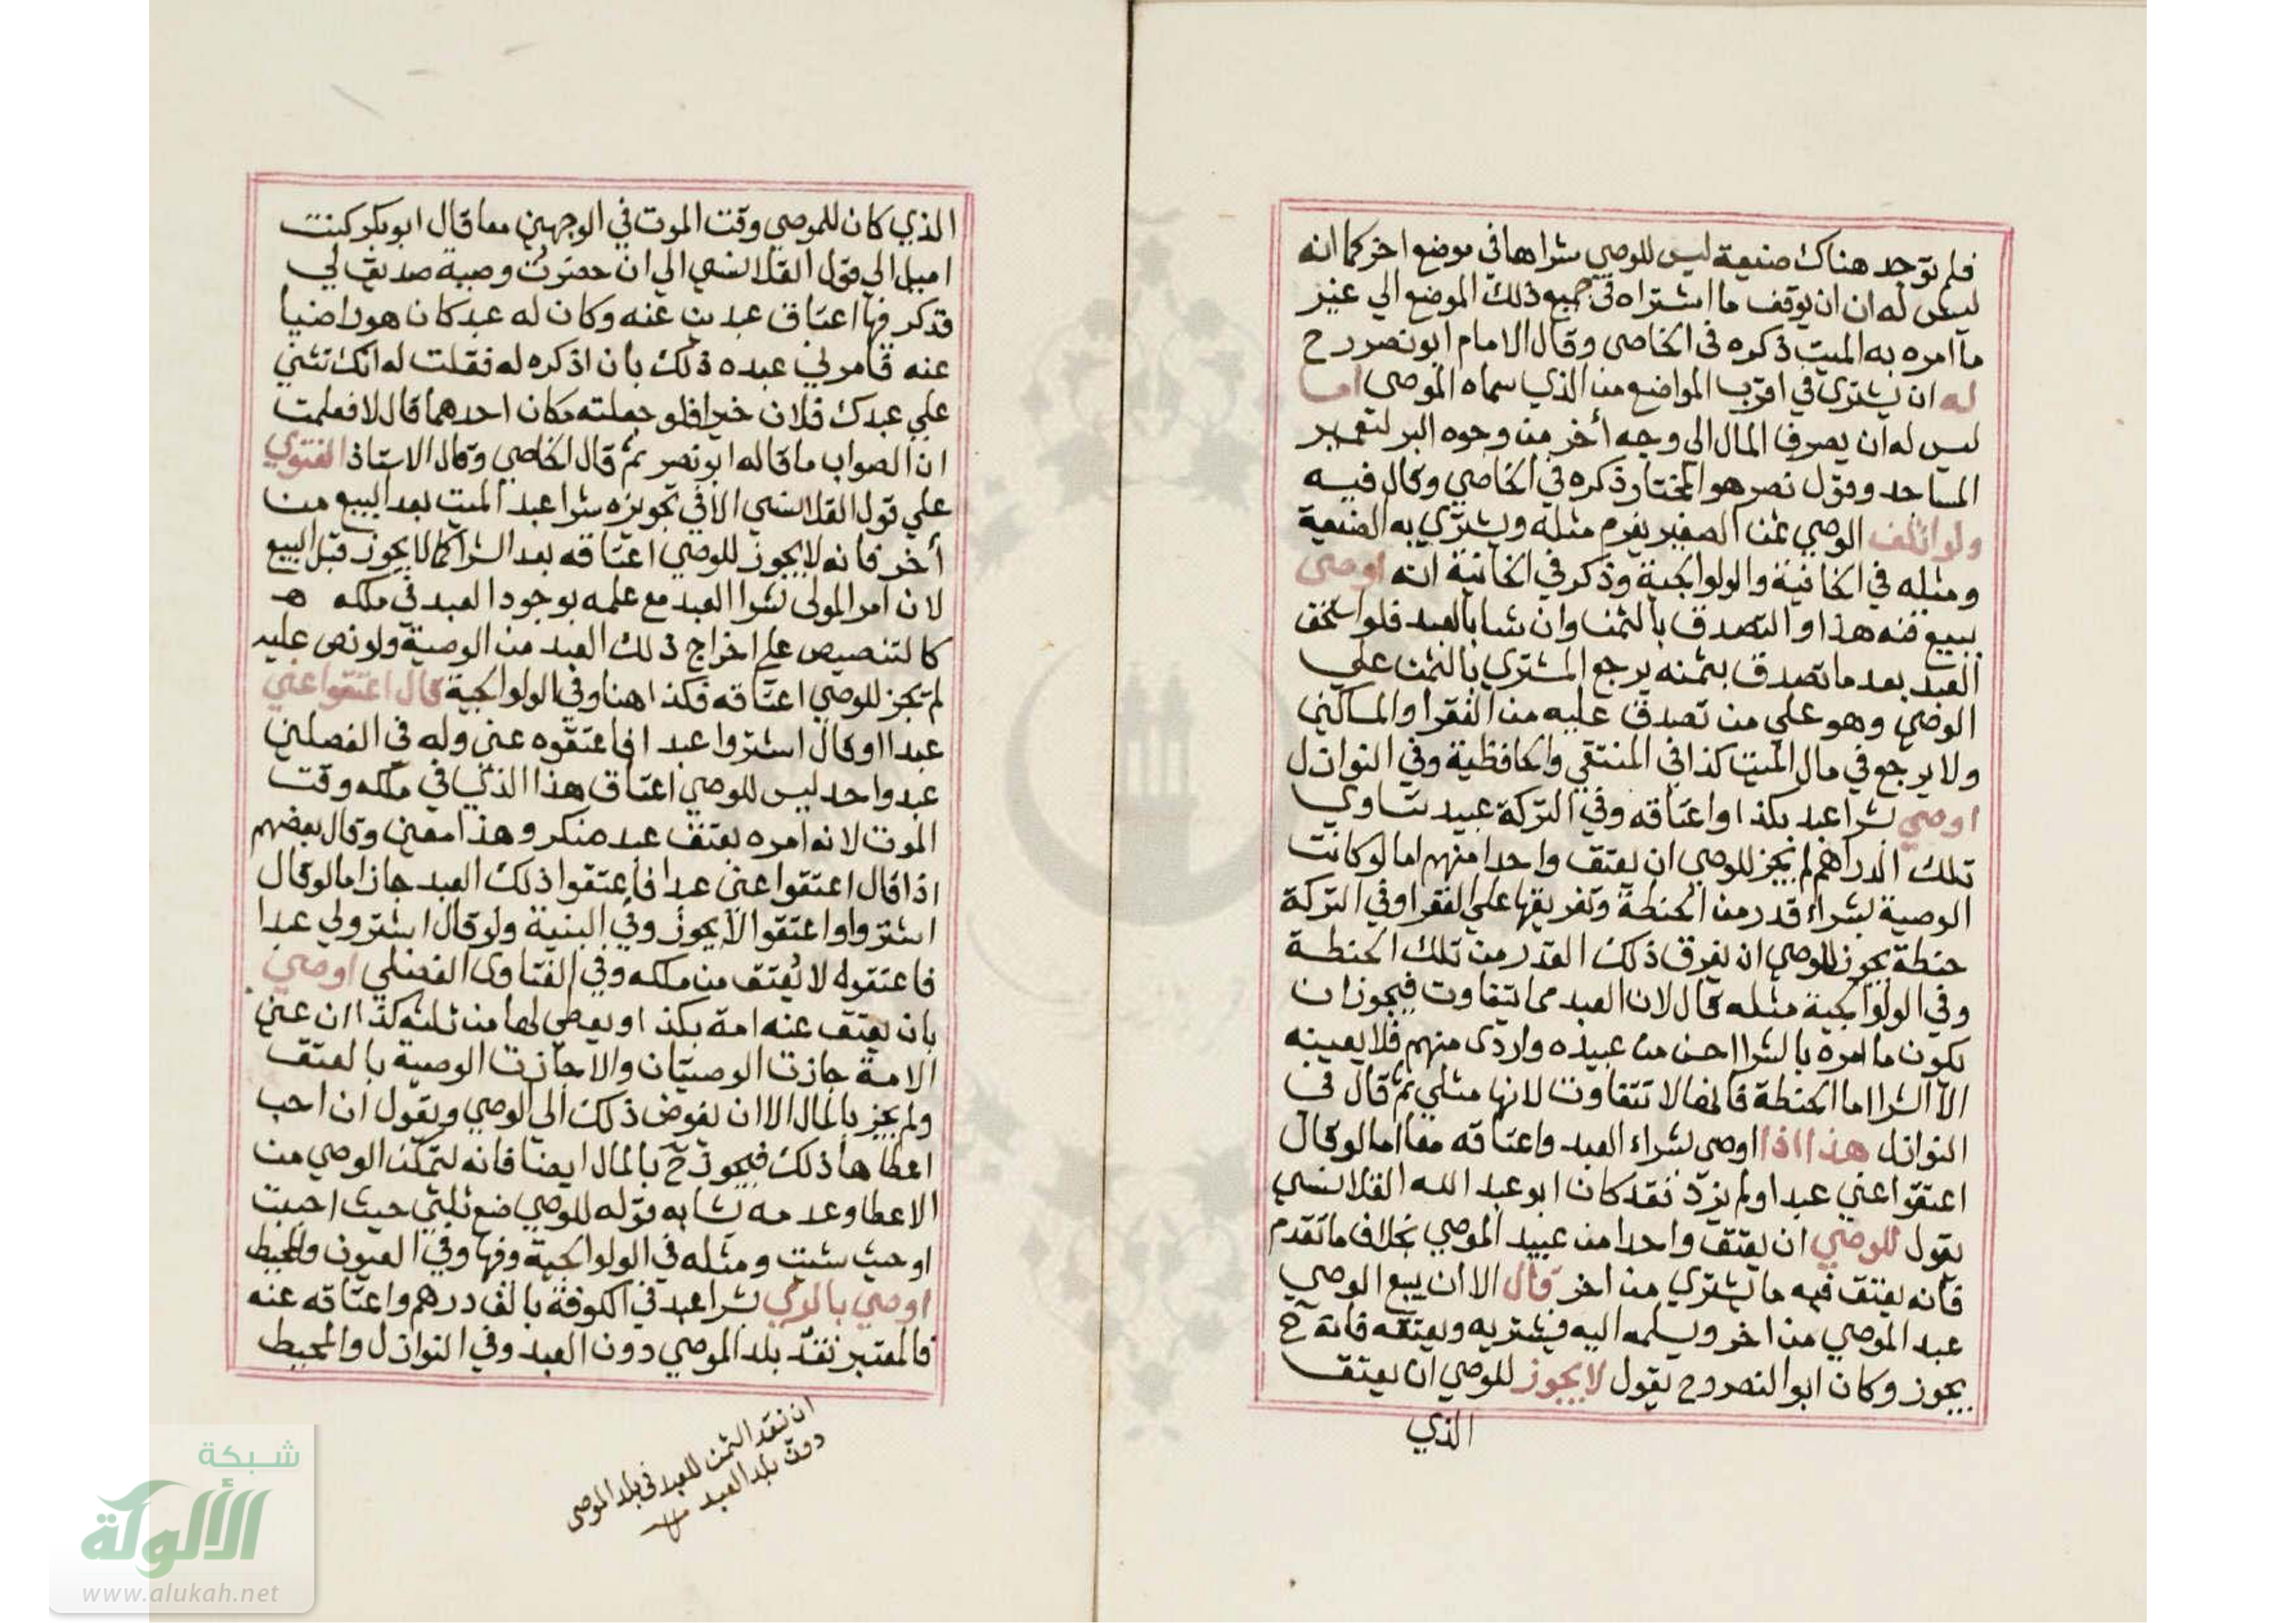 فلم توجد هناك ضيعة ليس للوصي شراها في موضع اخر كما انه
ليس له ان ان يوقف ما اشتراه في جميع ذلك الموضع الي غير
ما امره به الميت ذكره في الخاصي وقال الامام ابو نصر رح
له ان يشتري في اقرب المواضع من الذي سماه الموصي اما
ليس له ان يصرف المال الي وجه أخر من وجوه البر لتعمير
المساجد وقول نصر هو المختار ذكره في الخاصي وقال فيه
ولو اتلف الوصي ثمن الصغير يغرم مثله ويشتري به الضيعة
ومثله في الخانية والولوالجية وذكر في الخانية انه اوصي
ببيع قنه هذا والتصدق بالثمن وان شا بالعبد فلو استحق
العبد بعد ما تصدق بثمنه يرجع المشتري بالثمن علي
الوصي وهو علي من تصدق عليه من الفقرا والمساكين
ولا يرجع في مال الميت كذا في المنتقي والحافظية وفي النوازل
اوصي بشرا عبد بكذا واعتاقه وفي التركة عبيد تساوي
تلك الدراهم لم يجز للوصي ان يعتق واحدا منهم اما لو كانت
الوصية بشراء قدر من الحنطة وتفريقها علي الفقرا وفي التركة
حنطة يجوز للوصي ان يفرق ذلك القدر من تلك الحنطة
وفي الولوالجية مثله قال لان العبد مما يتفاوت فيجوز ان
يكون ما امره بالشرا احسن من عبيده واردى منهم فلا يعينه
الا الشرا اما الحنطة فانها لا تتفاوت لانها مثلي ثم قال في
النوازل هذا اذا اوصي بشراء العبد واعتاقه معا اما لو قال
اعتقوا عني عبدا ولم يزد فقد كان ابو عبد الله القلانسي
يقول للوصي ان يعتق واحدا من عبيد الموصي بخلاف ما تقدم
فانه يعتق فيه ما يشتري من اخر قال الا ان يبيع الوصي
عبد الموصي من اخر ويسلمه اليه فيشتريه ويعتقه فانه ح
يجوز وكان ابو النصر رح يقول لا يجوز للوصي ان يعتق
الذي
الذي كان للموصي وقت الموت في الوجهين معا قال ابو بكر كنت
اميل الي قول القلانسي الي ان حضرت وصية صديق لي
فذكر فيها اعتاق عبد عنه وكان له عبد كان هو راضيا
عنه فامرني عبده ذلك بان اذكره له فقلت له انك تثني
علي عبدك فلان خيرا فلو جعلته مكان احدهما قال لا فعلمت
ان الصواب ما قاله ابو نصر ثم قال الخاصي وقال الاستاذ الفتوي
علي قول القلانسي الا في تجويزه شرا عبد الميت بعد البيع من
أخر فانه لا يجوز للوصي اعتاقه بعد الشرا كما لا يجوز قبل البيع
لان امر المولى بشرا العبد مع علمه بوجود العبد في ملكه
كالتنصيص علي اخراج ذلك العبد من الوصية ولو نص عليه
لم تجز للوصي اعتاقه فكذا هنا وفي الولوالجية قال اعتقوا عني
عبدا او قال اشتروا عبدا فاعتقوه عني وله في الفصلين
عبد واحد ليس للوصي اعتاق هذا الذي في ملكه وقت
الموت لانه امره بعتق عبد منكر وهذا معين وقال بعضهم
اذا قال اعتقوا عني عبدا فاعتقوا ذلك العبد جاز اما لو قال
اشتروا واعتقوا لا يجوز وفي البنية ولو قال اشتروا لي عبدا
فاعتقوه لا يُعتق من ملكه وفي الفتاوى الفضلي اوصي
بان يعتق عنه امة بكذا ويعطي لها من ثلثه كذا ان عين
الامة جازت الوصيتان والا جازت الوصية بالعتق
ولم يجز بالمال الا ان يفوض ذلك الي الوصي ويقول ان احب
اعطاها ذلك فيجوز ح بالمال ايضا فانه لتمكن الوصي من
الاعطا وعدمه يشابه قوله للوصي ضع ثلثي حيث احببت
او حيث شئت ومثله في الولوالجية وفيها وفي العيون والمحيط
اوصي بالري بشرا عبد في الكوفة بالف درهم واعتاقه عنه
فالمعتبر نقد بلد الموصي دون العبد وفي النوازل والمحيط
ان نقد الثمن للعبد في بلد الموصي
دون بلد العبد
شبكة
الألوكة
www.alukah.net